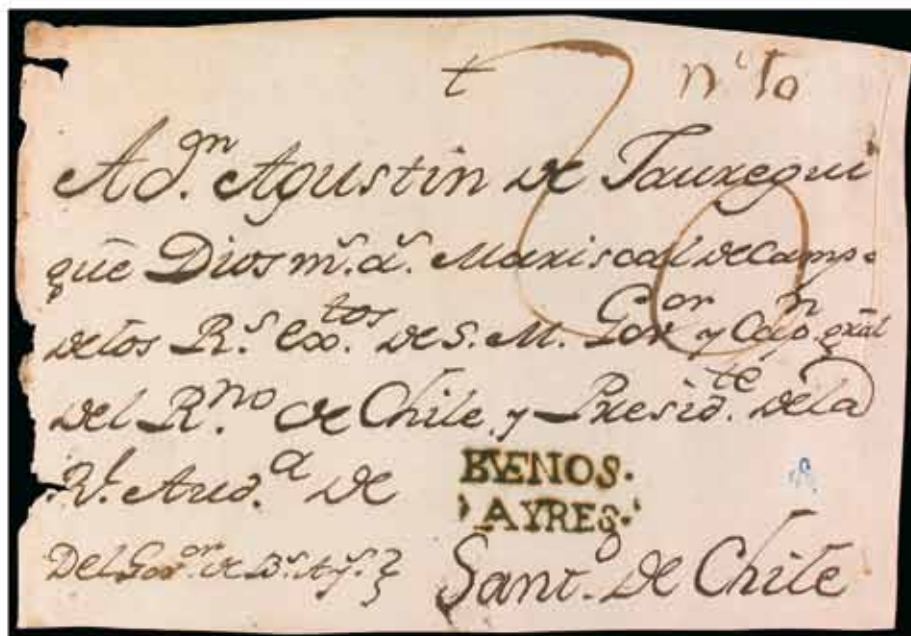 t nᵒ 10
A dⁿ. Agustin de Jauregui
qūe Dios mˢ. aˢ. Mariscal de Campo
de los Rˢ. exᵗᵒˢ. de S. M. Govᵒʳ y Capⁿ. gr̄al
del Rⁿᵒ. de Chile, y Presidᵗᵉ. de la
Rˡ. Audᵃ. de
BUENOS.
AYRES.
Del Govᵒʳ. de Bˢ. Ayˢ.
Santᵒ. de Chile